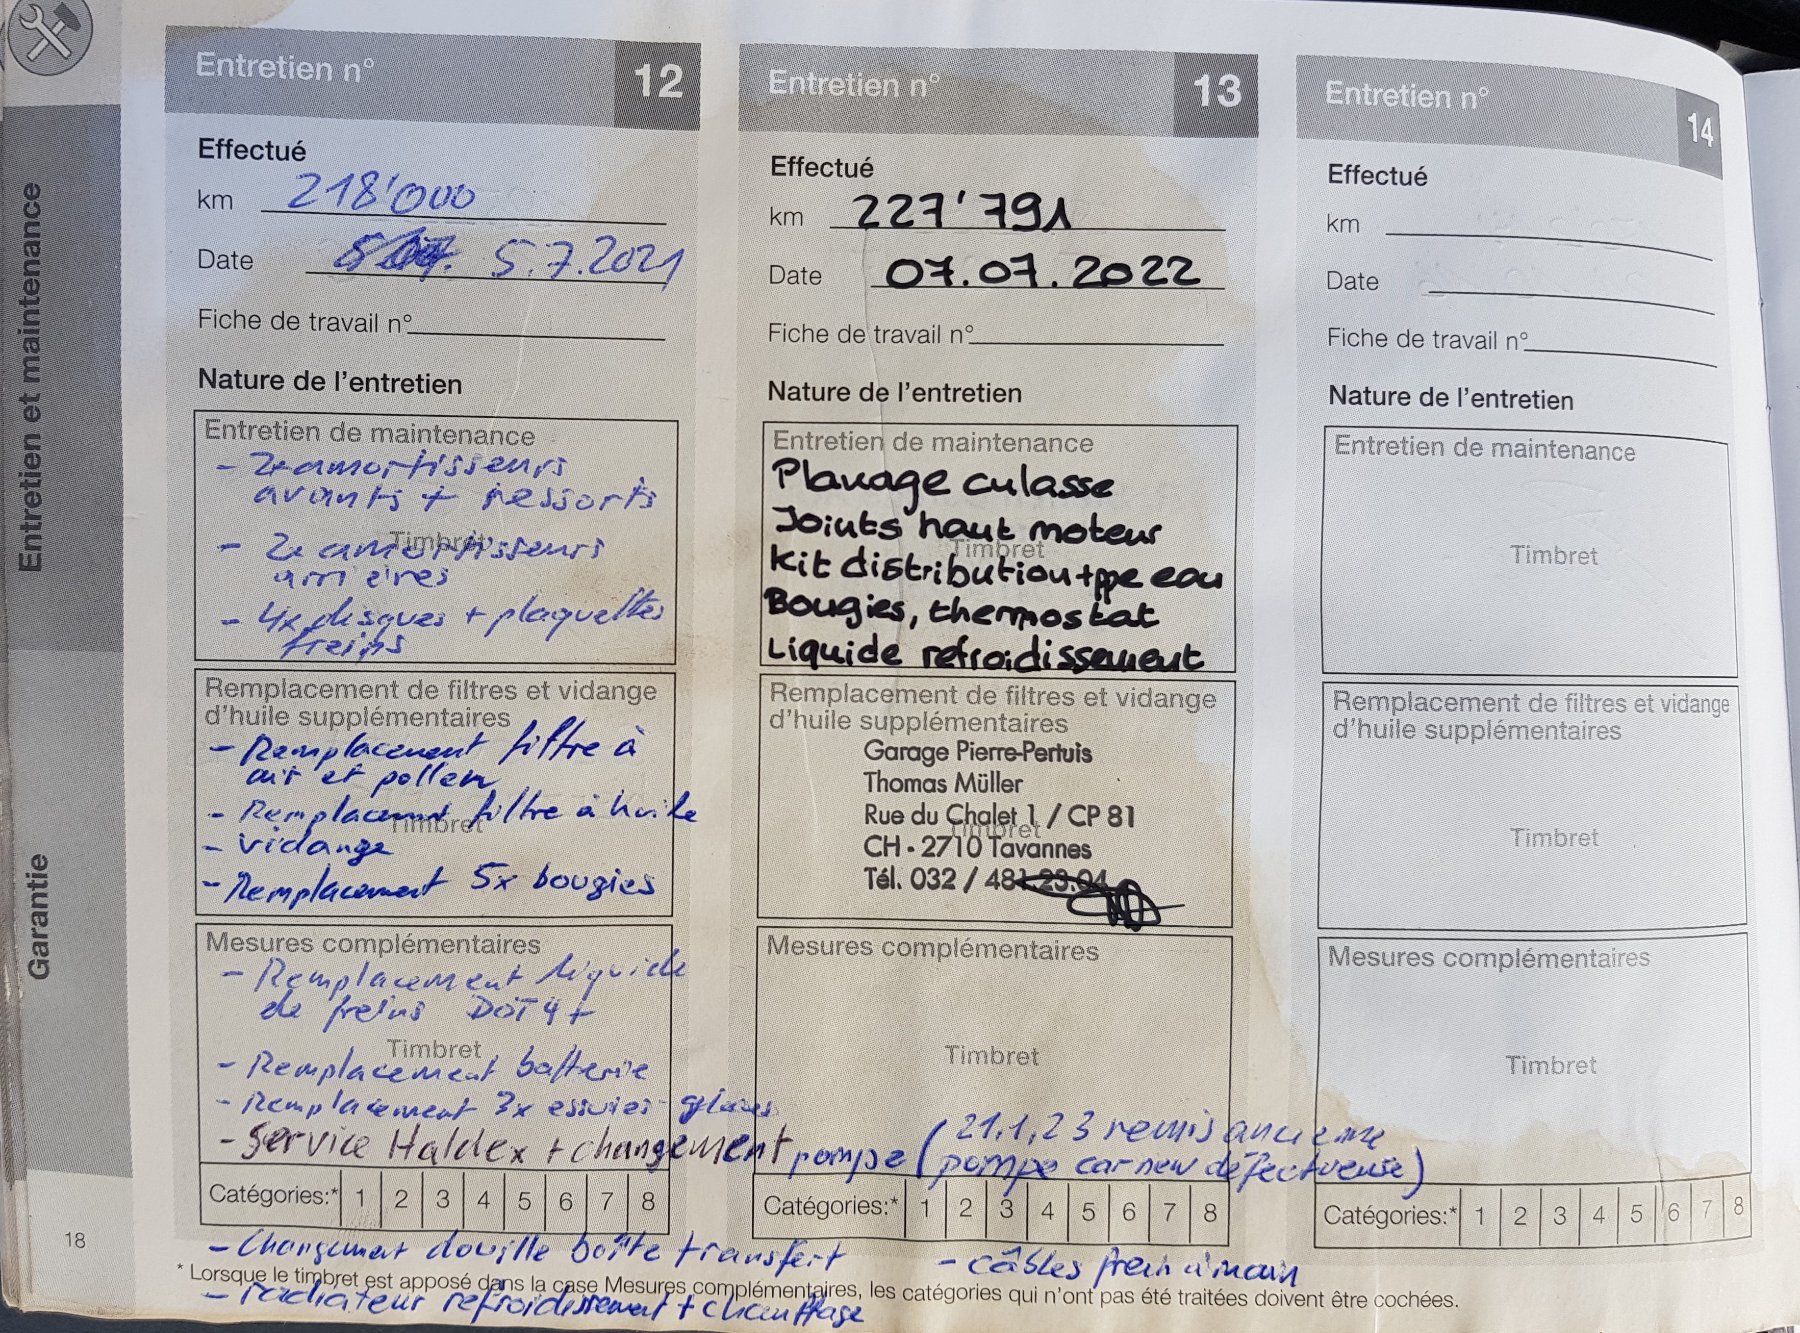 Entretien et maintenance
Garantie
18
Entretien n° 12
Effectué
km 218'000
Date 5.7.2021
Fiche de travail n°
Nature de l'entretien
Entretien de maintenance
- 2x amortisseurs
avants + ressorts
Timbret
- 2x amortisseurs
arrières
- 4x disques + plaquettes
freins
Remplacement de filtres et vidange
d'huile supplémentaires
- Remplacement filtre à
air et pollen
- Remplacement filtre à huile
Timbret
- vidange
- Remplacement 5x bougies
Mesures complémentaires
- Remplacement liquide
de freins DOT 4+
Timbret
- Remplacement batterie
- Remplacement 3x essuies-glaces
- Service Haldex + changement pompe (21.1.23 remis ancienne
pompe car new défectueuse)
Catégories:* 1 2 3 4 5 6 7 8
- Changement douille boîte transfert
- radiateur refroidissement + chauffage
Entretien n° 13
Effectué
km 227'791
Date 07.07.2022
Fiche de travail n°
Nature de l'entretien
Entretien de maintenance
Planage culasse
Joints haut moteur
Timbret
Kit distribution + ppe eau
Bougies, thermostat
Liquide refroidissement
Remplacement de filtres et vidange
d'huile supplémentaires
Garage Pierre-Pertuis
Thomas Müller
Rue du Chalet 1 / CP 81
Timbret
CH - 2710 Tavannes
Tél. 032 / 481.23.04
Mesures complémentaires
Timbret
Catégories:* 1 2 3 4 5 6 7 8
- câbles frein à main
Entretien n° 14
Effectué
km
Date
Fiche de travail n°
Nature de l'entretien
Entretien de maintenance
Timbret
Remplacement de filtres et vidange
d'huile supplémentaires
Timbret
Mesures complémentaires
Timbret
Catégories:* 1 2 3 4 5 6 7 8
* Lorsque le timbret est apposé dans la case Mesures complémentaires, les catégories qui n'ont pas été traitées doivent être cochées.